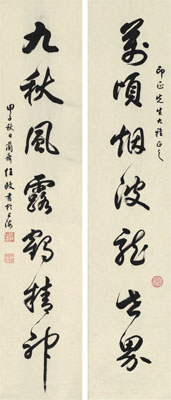 萬頃烟波龍世界
印正先生大雅正之
九秋風露鶴精神
甲子秋日蘭齋任政書於上海